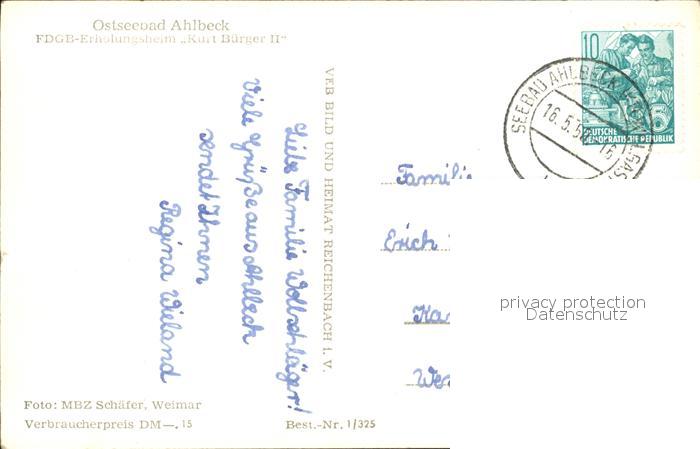 Ostseebad Ahlbeck
FDGB-Erholungsheim „Kurt Bürger II"
Liebe Familie Wollschläger!
Viele Grüße aus Ahlbeck
sendet Ihnen
Regina Wieland
VEB BILD UND HEIMAT REICHENBACH i. V.
10
DEUTSCHE
DEMOKRATISCHE REPUBLIK
SEEBAD AHLBECK
16.5.5
Famili
Erich
privacy protection
Datenschutz
Foto: MBZ Schäfer, Weimar
Verbraucherpreis DM—.15
Best.-Nr. 1/325